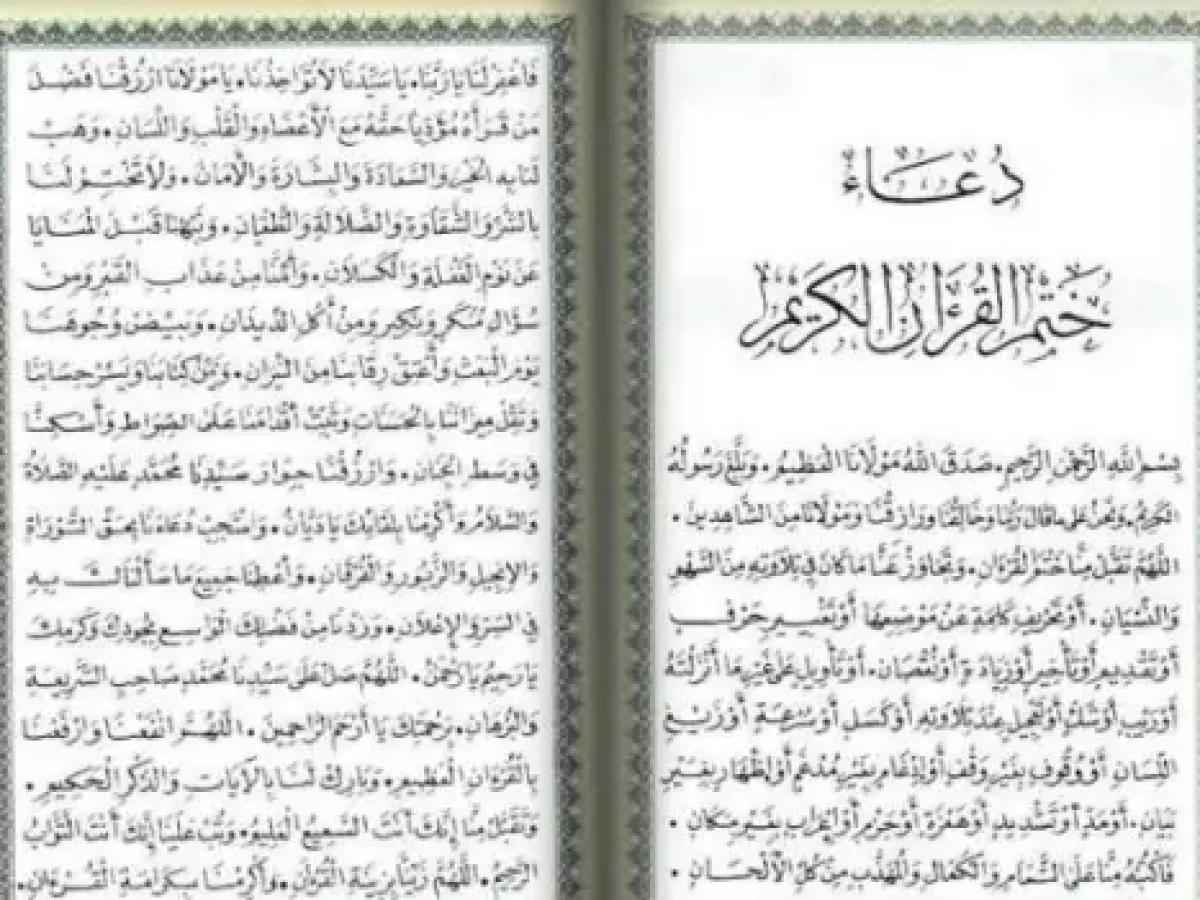 دُعَاءُ
خَتْمِ الْقُرْءَانِ الْكَرِيمِ
بِسْمِ اللهِ الرَّحْمٰنِ الرَّحِيمِ. صَدَقَ اللهُ مَوْلَانَا الْعَظِيمُ. وَبَلَّغَ رَسُولُهُ
الْكَرِيمُ. وَنَحْنُ عَلَى مَا قَالَ رَبُّنَا وَخَالِقُنَا وَرَازِقُنَا وَمَوْلَانَا مِنَ الشَّاهِدِينَ.
اللَّهُمَّ تَقَبَّلْ مِنَّا خَتْمَ الْقُرْءَانِ. وَتَجَاوَزْ عَنَّا مَا كَانَ فِي تِلَاوَتِهِ مِنَ السَّهْوِ
وَالنِّسْيَانِ. أَوْ تَحْرِيفِ كَلِمَةٍ عَنْ مَوْضِعِهَا أَوْ تَغْيِيرِ حَرْفٍ
أَوْ تَقْدِيمٍ أَوْ تَأْخِيرٍ أَوْ زِيَادَةٍ أَوْ نُقْصَانٍ. أَوْ تَأْوِيلٍ عَلَى غَيْرِ مَا أَنْزَلْتَهُ
أَوْ رَيْبٍ أَوْ شَكٍّ أَوْ تَعْجِيلٍ عِنْدَ تِلَاوَتِهِ أَوْ كَسَلٍ أَوْ سُرْعَةٍ أَوْ زَيْغِ
اللِّسَانِ أَوْ وُقُوفٍ بِغَيْرِ وَقْفٍ أَوْ إِدْغَامٍ بِغَيْرِ مُدْغَمٍ أَوْ إِظْهَارٍ بِغَيْرِ
بَيَانٍ. أَوْ مَدٍّ أَوْ تَشْدِيدٍ أَوْ هَمْزَةٍ أَوْ جَزْمٍ أَوْ إِعْرَابٍ بِغَيْرِ مَكَانٍ.
فَاكْتُبْهُ مِنَّا عَلَى التَّمَامِ وَالْكَمَالِ وَالْمُهَذَّبِ مِنْ كُلِّ الْأَلْحَانِ.
فَاغْفِرْ لَنَا يَا رَبَّنَا. يَا سَيِّدَنَا لَا تُؤَاخِذْنَا. يَا مَوْلَانَا ارْزُقْنَا فَضْلَ
مَنْ قَرَأَهُ مُؤَدِّيًا حَقَّهُ مَعَ الْأَعْضَاءِ وَالْقَلْبِ وَاللِّسَانِ. وَهَبْ
لَنَا بِهِ الْخَيْرَ وَالسَّعَادَةَ وَالْبِشَارَةَ وَالْأَمَانَ. وَلَا تَخْتِمْ لَنَا
بِالشَّرِّ وَالشَّقَاوَةِ وَالضَّلَالَةِ وَالطُّغْيَانِ. وَنَبِّهْنَا قَبْلَ الْمَنَايَا
عَنْ نَوْمِ الْغَفْلَةِ وَالْكَسَلَانِ. وَأَمِّنَّا مِنْ عَذَابِ الْقَبْرِ وَمِنْ
سُؤَالِ مُنْكَرٍ وَنَكِيرٍ وَمِنْ أَكْلِ الدِّيدَانِ. وَبَيِّضْ وُجُوهَنَا
يَوْمَ الْبَعْثِ وَأَعْتِقْ رِقَابَنَا مِنَ النِّيرَانِ. وَيَمِّنْ كِتَابَنَا وَيَسِّرْ حِسَابَنَا
وَثَقِّلْ مِيزَانَنَا بِالْحَسَنَاتِ وَثَبِّتْ أَقْدَامَنَا عَلَى الصِّرَاطِ وَأَسْكِنَّا
فِي وَسَطِ الْجِنَانِ. وَارْزُقْنَا جِوَارَ سَيِّدِنَا مُحَمَّدٍ عَلَيْهِ الصَّلَاةُ
وَالسَّلَامُ وَأَكْرِمْنَا بِلِقَائِكَ يَا دَيَّانُ. وَاسْتَجِبْ دُعَاءَنَا بِحَقِّ التَّوْرَاةِ
وَالْإِنْجِيلِ وَالزَّبُورِ وَالْفُرْقَانِ. وَأَعْطِنَا جَمِيعَ مَا سَأَلْنَاكَ بِهِ
فِي السِّرِّ وَالْإِعْلَانِ. وَزِدْنَا مِنْ فَضْلِكَ الْوَاسِعِ بِجُودِكَ وَكَرَمِكَ
يَا رَحِيمُ يَا رَحْمٰنُ. اللَّهُمَّ صَلِّ عَلَى سَيِّدِنَا مُحَمَّدٍ صَاحِبِ الشَّرِيعَةِ
وَالْبُرْهَانِ. بِرَحْمَتِكَ يَا أَرْحَمَ الرَّاحِمِينَ. اللَّهُمَّ انْفَعْنَا وَارْفَعْنَا
بِالْقُرْءَانِ الْعَظِيمِ. وَبَارِكْ لَنَا بِالْآيَاتِ وَالذِّكْرِ الْحَكِيمِ.
وَتَقَبَّلْ مِنَّا إِنَّكَ أَنْتَ السَّمِيعُ الْعَلِيمُ. وَتُبْ عَلَيْنَا إِنَّكَ أَنْتَ التَّوَّابُ
الرَّحِيمُ. اللَّهُمَّ زَيِّنَّا بِزِينَةِ الْقُرْءَانِ. وَأَكْرِمْنَا بِكَرَامَةِ الْقُرْءَانِ.